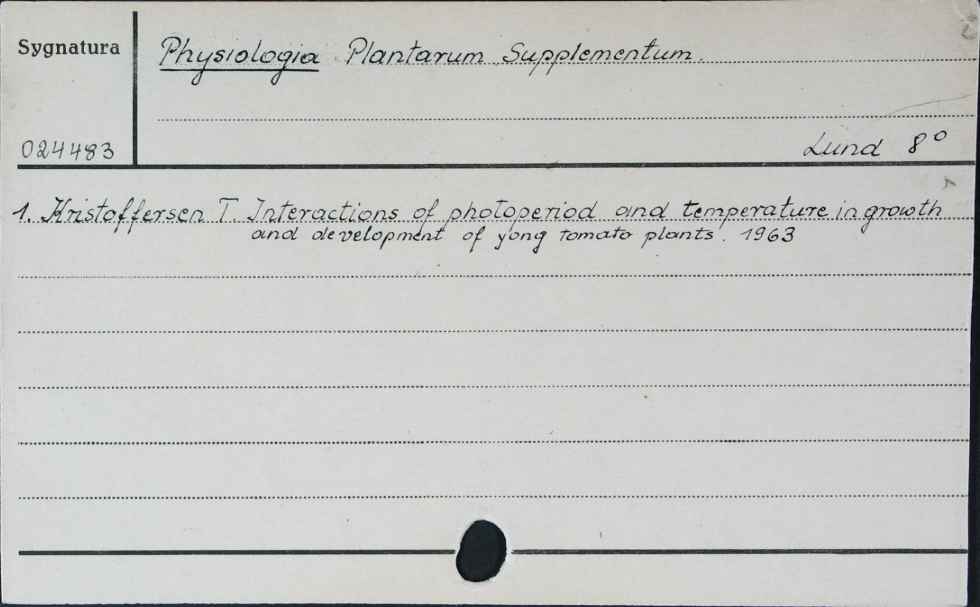 Sygnatura
Physiologia Plantarum Supplementum.
024483
Lund 8°
1. Kristoffersen T. Interactions of photoperiod and temperature in growth
and development of yong tomato plants. 1963